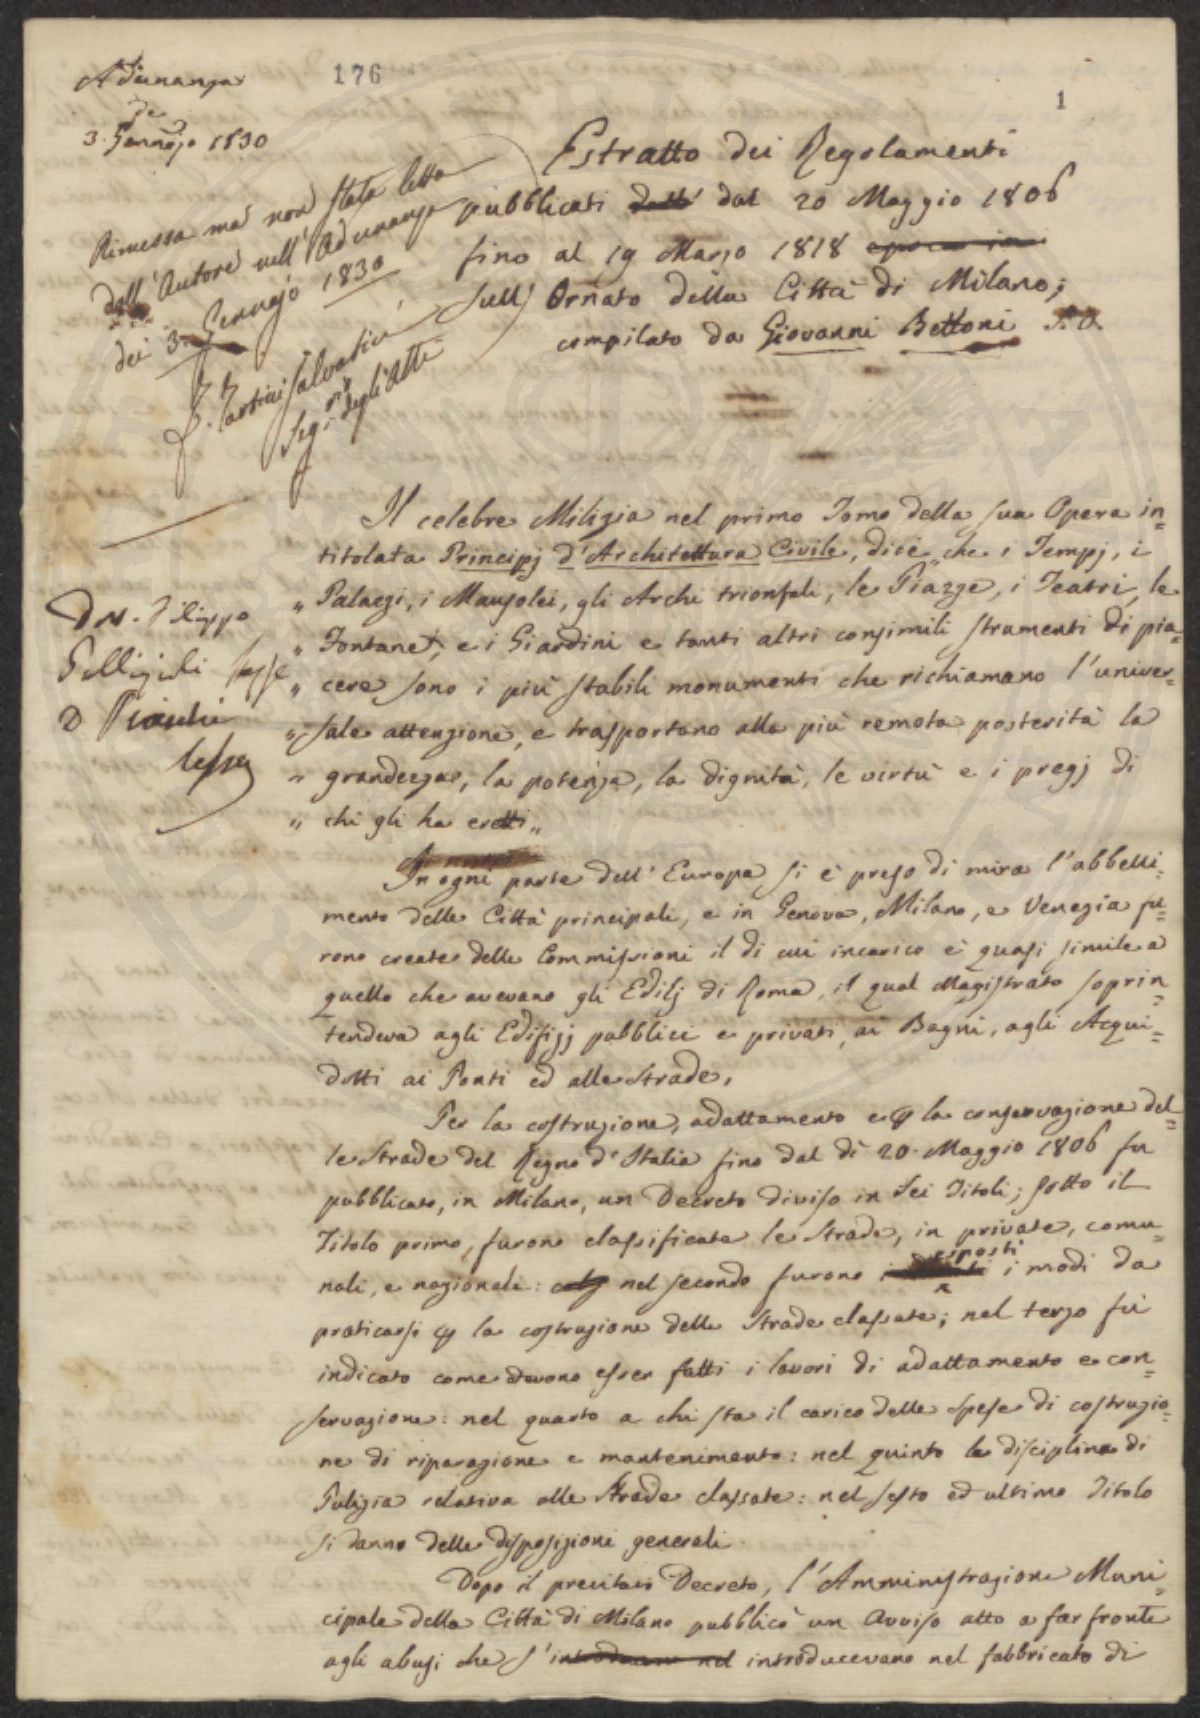 Adunanza
176
de
3. Gennajo 1830
1
Rimessa ma non stata letta
dall'Autore nell'Adunanza
dei 3. Gennajo 1830
F. Tartini Salvatici
Seg.rio degli Atti
Estratto dei Regolamenti
pubblicati dal 20 Maggio 1806
fino al 19 Marzo 1818
sull' Ornato della Città di Milano;
compilato da Giovanni Bettoni S. O.
Il celebre Milizia nel primo Tomo della sua Opera in=
titolata Principj d'Architettura Civile, dice „che i Tempj, i
„ Palazzi, i Mausolei, gli Archi trionfali, le Piazze, i Teatri, le
„ Fontane, e i Giardini e tanti altri consimili strumenti di pia=
„ cere sono i più stabili monumenti che richiamano l'univer=
„ sale attenzione, e trasportano alla più remota posterità la
„ grandezza, la potenza, la dignità, le virtù e i pregj di
„ chi gli ha eretti„
Dn. Filippo
lesse
D
lesse
In ogni parte dell' Europa si è preso di mira l'abbelli=
mento delle Città principali, e in Genova, Milano, e Venezia fu=
rono create delle Commissioni il di cui incarico è quasi simile a
quello che avevano gli Edilj di Roma, il qual Magistrato soprin=
tendeva agli Edifizj pubblici e privati, ai Bagni, agli Acqui=
dotti ai Ponti ed alle Strade.
Per la costruzione, adattamento e p la conservazione del=
le Strade del Regno d'Italia fino dal dì 20. Maggio 1806 fu
pubblicato, in Milano, un Decreto diviso in Sei Titoli; sotto il
Titolo primo, furono classificate le Strade, in private, comu=
nali, e nazionali: nel secondo furono esposti i modi da
praticarsi p la costruzione delle Strade classate; nel terzo fù
indicato come devono esser fatti i lavori di adattamento e con=
servazione: nel quarto a chi sta il carico delle spese di costruzio=
ne di riparazione e mantenimento: nel quinto le discipline di
Pulizia relativa alle Strade classate: nel sesto ed ultimo Titolo
si danno delle disposizioni generali
Dopo il precitato Decreto, l'Amministrazione Muni=
cipale della Città di Milano pubblicò un Avviso atto a far fronte
agli abusi che s'introducevano nel fabbricato di